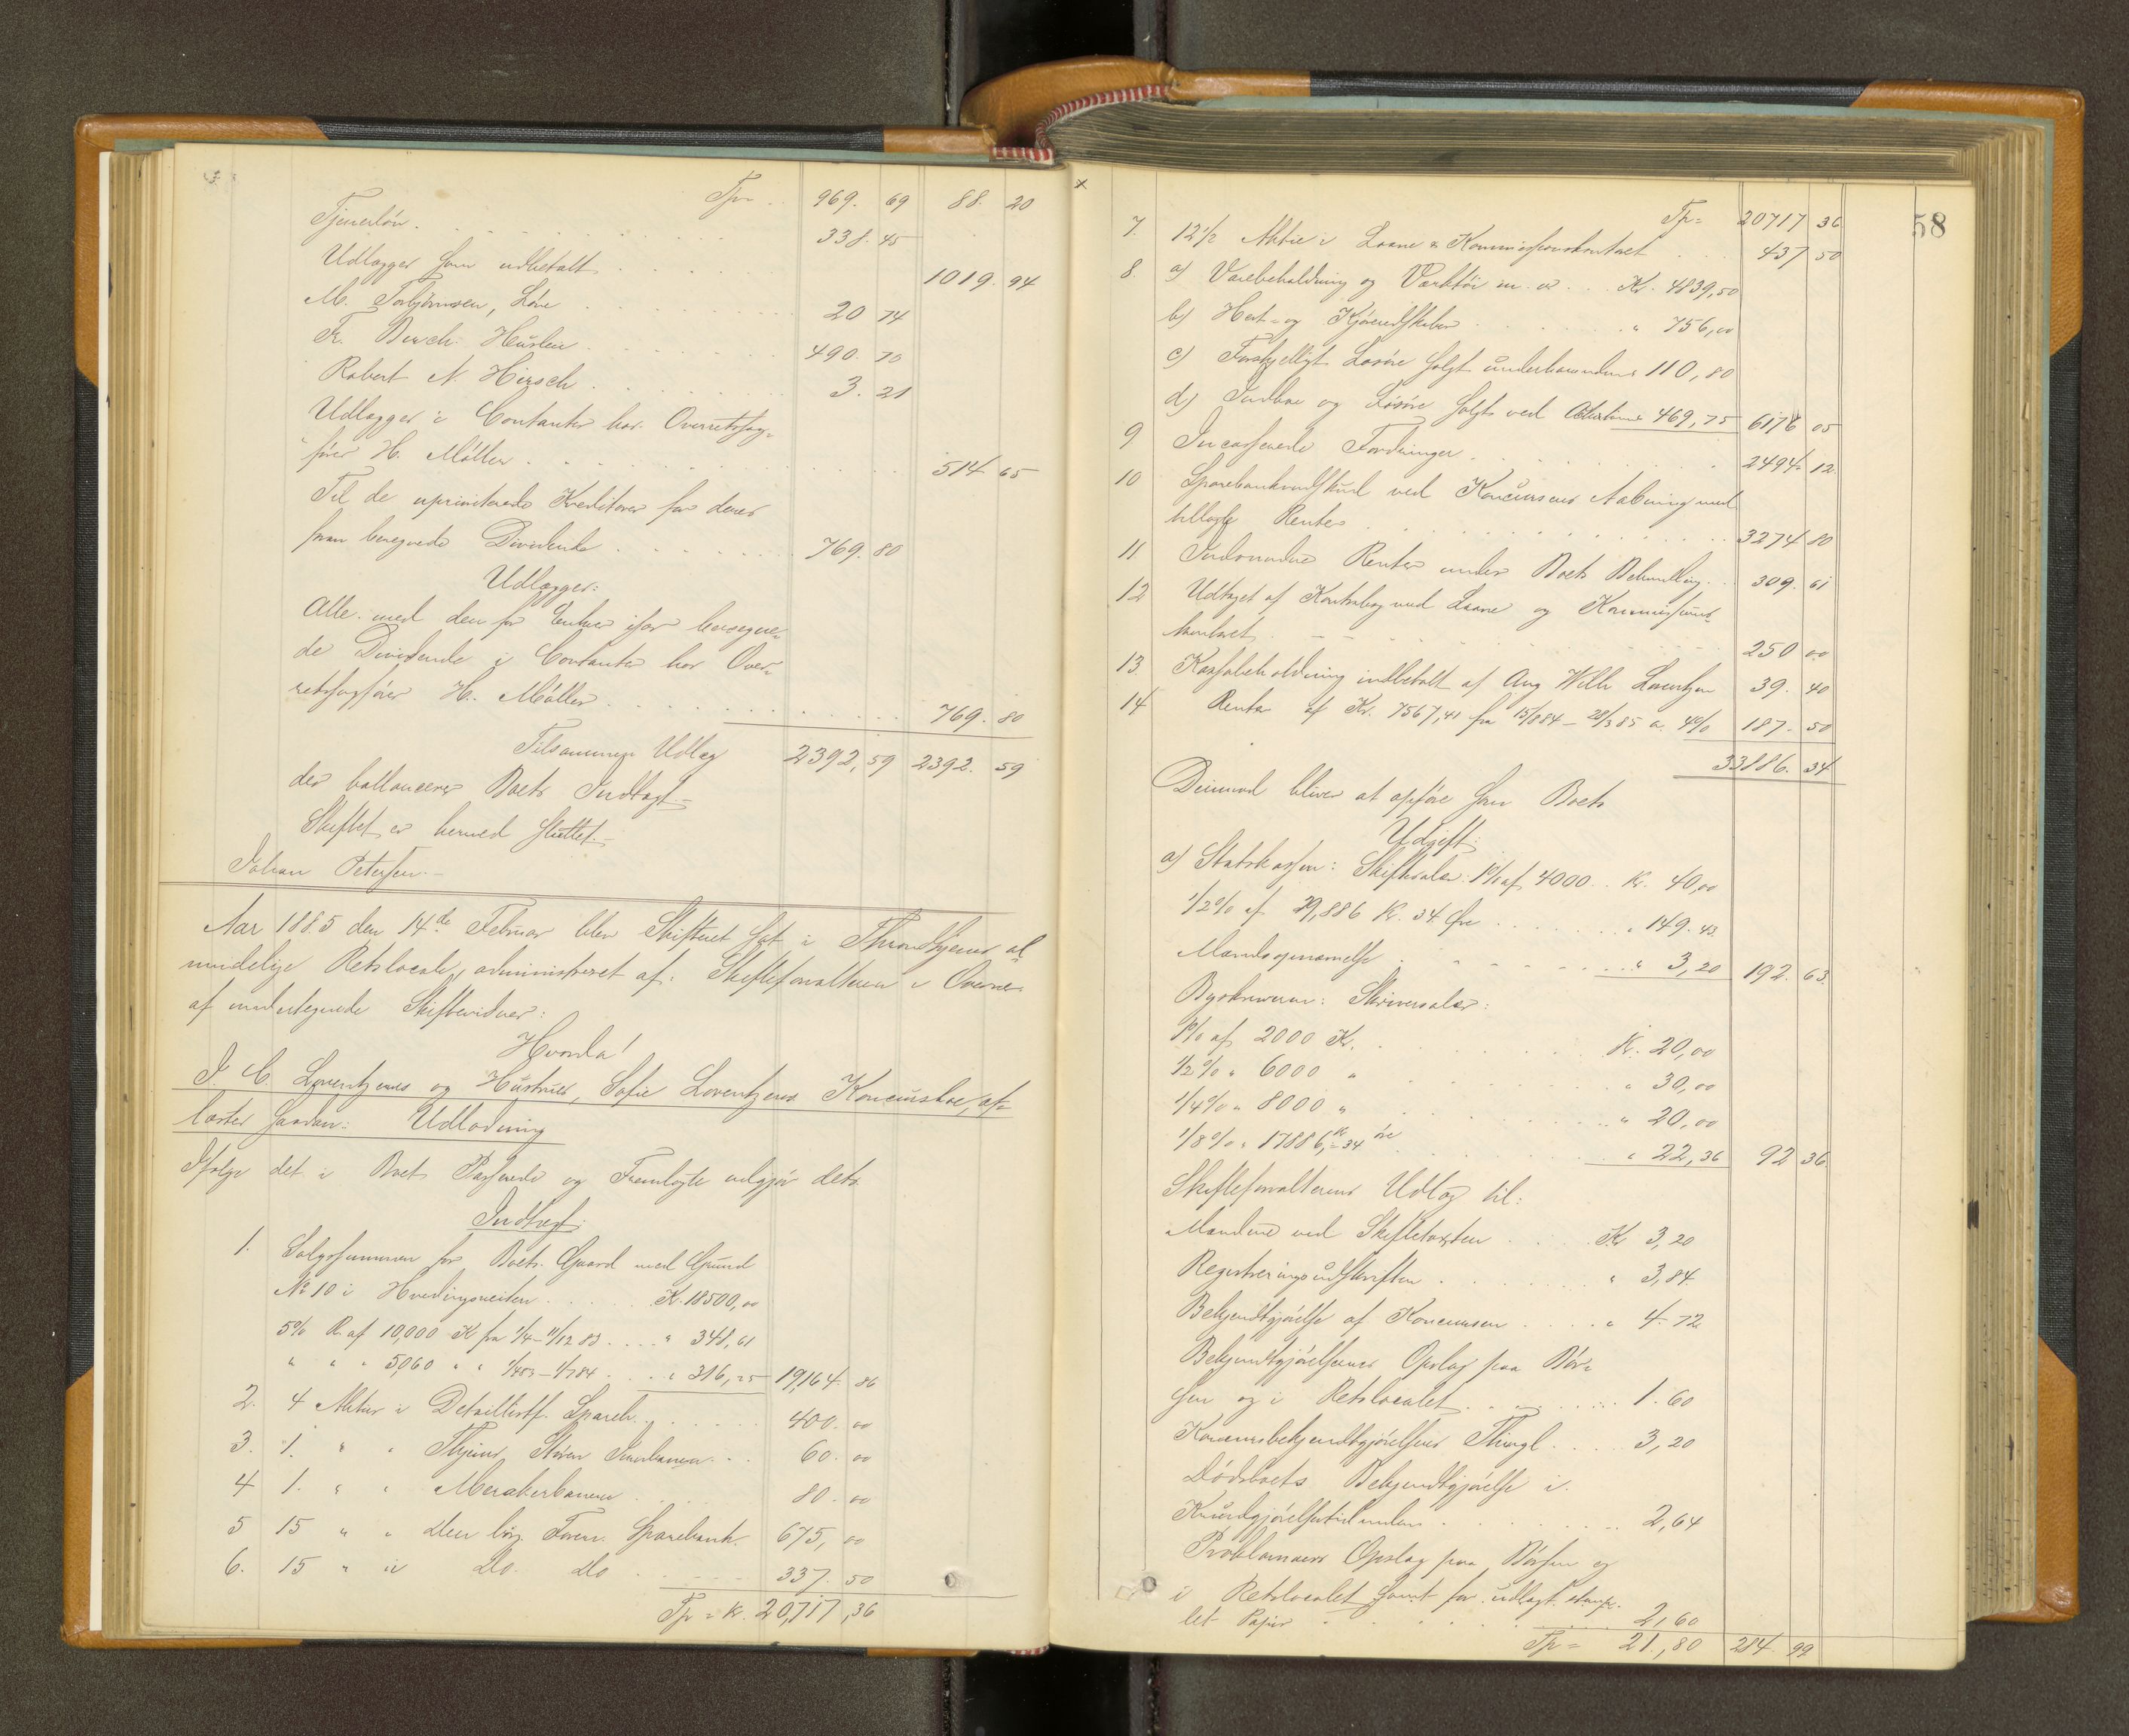 Tpr . . 969. 69 88. 20
Tjenerløn . . . . 338. 45
Udlægger som udbetalt . . . . 1019. 94
M. Torbjörnsen, Lön . . . . 20 74
Fr. Dusch. Husleie . . . . 490. 70
Robert N. Hirsch . . . . 3. 21
Udlægger i Contanter hos Overretssag-
fører H. Möller . . . . 514 65
Til de upriviterede Kreditorer for deres
foran beregnede Dividende . . . . 769. 80
Udlægges:
Alle med den for Enhver især beregne-
de Dividende i Contanter hos Over-
retssagfører H. Möller . . . . 769. 80
Tilsammen Udlæg 2392, 59 2392. 59
der ballancerer Boets Indtægt.-
Skiftet er hermed sluttet.-
Johan Petersen.-
Aar 1885 den 14de Februar blev Skifteret sat i Throndhjems al-
mindelige Retslocale, administreret af Skifteforvalteren i Overvær
af undertegnede Skiftevidner:
Hvorda!
J. C. Lorentzens og Hustrues, Sofie Lorentzens Koncursbo, af-
lagdes saadan: Udlodning
Ifølge det i Boet Passerede og Fremlagte udgjør dets
Indtægt:
1. Salgssummen for Boets Gaard med Grund
No 10 i Hvedingsveiten . . . . K. 18500,00
5% R. af 10,000 K fra 1/4-11/12 83 . . . . " 348,61
" " " 5,060 " " 1/4 83-1/7 84 . . . " 316,25 19,164. 86
2. 4 Aktier i Detaillistf. Spareb. . . . . 400. 00
3. 1. " " Thjems Støren Jernbanen . . . 60. 00
4 1. " " Merakerbanen . . . . 80. 00
5 15 " " Den borg. Foren. Sparebank. 675, 00
6. 15 " " Do. Do . . . . 337. 50
Tpr = Kr. 20,717, 36
58
Tpr = 20717 36
7. 12 1/2 Aktie i Laane & Kommissionskontoret . . . 437 50
8. a) Varebeholdning og Værktöi m. v. . . Kr. 4839,50
b) Hest- og Kjøreredskaber . . . . " 756,00
c) Forskjelligt Løsøre solgt underhaanden " 110,80
d) Indbo og Løsøre solgt ved Auktion " 469,75 6176 05
9 Incasserede Fordringer . . . . 2494. 12.
10 Sparebankindskud ved Koncursens Aabning med
tillagte Renter . . . . 3274 80
11 Indvundne Renter under Boets Behandling . . 309. 61
12 Udtaget af Kontrabog med Laane og Kommissions-
kontoret . . . . 250 00
13. Kassabeholdning indbetalt af Aug Wilh Lorentzen 39. 40
14 Renter af Kr. 7567,41 fra 15/8 84 - 28/3 85 a 4% 187. 50
33886. 34
Derimod bliver at opføre som Boets
Udgift:
a) Statskassen: Skiftesalær: 1% af 4000 . . Kr. 40,00
1/2% af 29,886 Kr. 34 Øre . . . . " 149. 43.
Mandsopnævnelse . . . . " 3,20 192. 63.
Byskriveren: Skriversalær:
1% af 2000 Kr. . . . . Kr. 20,00
1/2% " 6000 " . . . . " 30,00
1/4% " 8000 " . . . . " 20,00
1/8% " 17886, Kr 34 øre . . . . " 22,36 92 36.
Skifteforvalterens Udlæg til:
Mændene ved Skiftetaxten . . . Kr 3,20
Registreringsudskriften . . . . " 3,84
Bekjendtgjørelse af Koncursen . . . . " 4.72
Bekjendtgjørelsernes Opslag paa Bør-
sen og i Retslocalet . . . . 1.60
Koncursbekjendtgjørelsens Thingl. . . . 3,20
Dødsboets Bekjendtgjørelse i
Kundgjørelsestidenden . . . . 2,64
Proklamaers Opslag paa Børsen og
i Retslocalet samt for udlagt stemp-
let Papir . . . . 2,60
Tpr = 21,80 284. 99